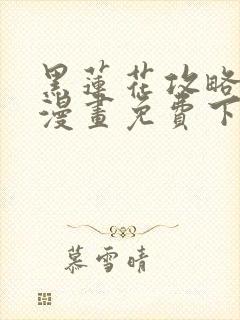 黑蓮花攻略
漫畫免費下
慕雪晴